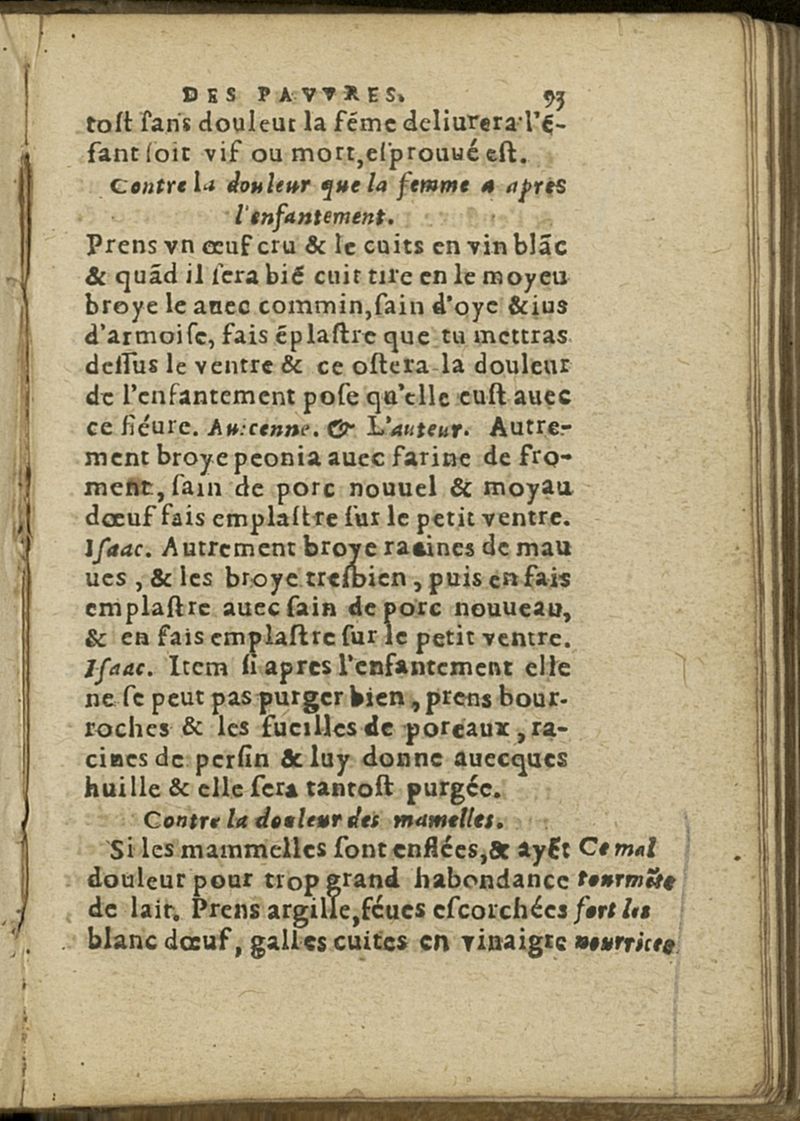 DES PAVVRES. 93
toſt ſans douleur la féme deliurera l'é-
fant ſoit vif ou mort, eſprouué eſt.
Contre la douleur que la femme a apres
l'enfantement.
Prens vn œuf cru & le cuits en vin blāc
& quād il ſera bié cuit tire en le moyeu
broye le auec commin, ſain d'oye & ius
d'armoiſe, fais éplaſtre que tu mettras
deſſus le ventre & ce oſtera la douleur
de l'enfantement poſe qu'elle euſt auec
ce fiéure. Auicenne. & L'auteur. Autre-
ment broye peonia auec farine de fro-
ment, ſain de porc nouuel & moyau
dœuf fais emplaſtre ſur le petit ventre.
Iſaac. Autrement broye racines de mau
ues, & les broye treſbien, puis en fais
emplaſtre auec ſain de porc nouueau,
& en fais emplaſtre ſur le petit ventre.
Iſaac. Item ſi apres l'enfantement elle
ne ſe peut pas purger bien, prens bour-
roches & les fueilles de poreaux, ra-
cines de perſin & luy donne auecques
huille & elle ſera tantoſt purgée.
Contre la douleur des mamelles.
Si les mammelles ſont enflées, & ayēt
douleur pour trop grand habondance
de lait. Prens argille, féues eſcorchées
blanc dœuf, galles cuites en vinaigre
Ce mal
tourmēte
fort les
nourrices